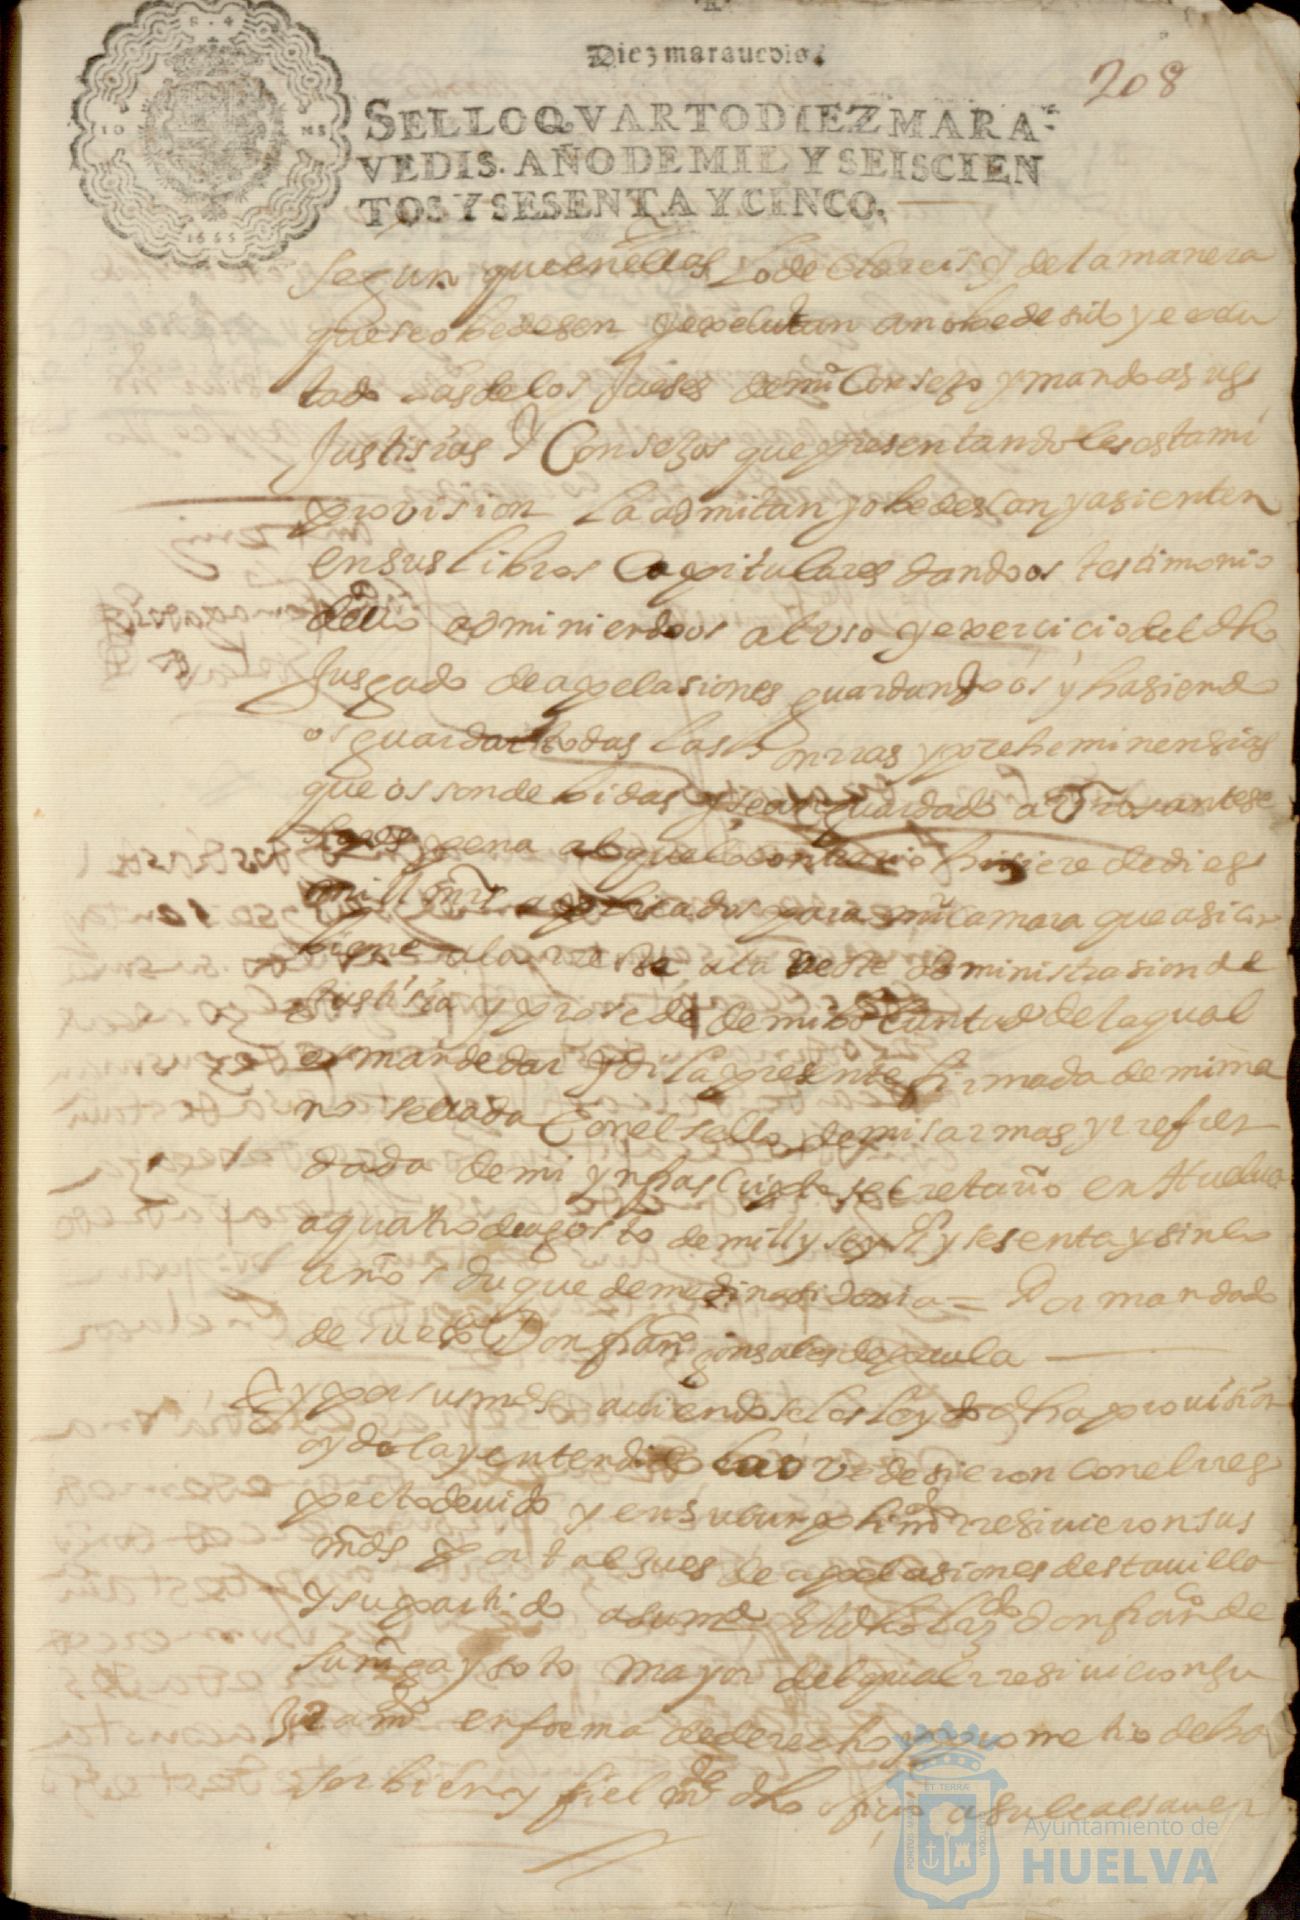 Diez maravedis.
208
SELLO QVARTO DIEZ MARA-
VEDIS. AÑO DE MIL Y SEISCIEN
TOS Y SESENTA Y CINCO.
segun que en ellas lo declareis y de la manera
que se obedesen y executan an obedesido y execu
tado las de los Jueses de mi Consejo y mando a las
Justisias y Consejos que presentandoles esta mi
provision la admitan y obedescan y asienten
en sus libros Capitulares dandoos testimonio
dello adminiendoos al uso y exercicio del dho
Jusgado de apelasiones guardandoos y hasiend
os guardar todas las honrras y preheminensias
que os son debidas y sean guardado a antese
pena al que lo contrario hisiere de dies
mill mrs aplicados para mi camara que asi con
biene a la administrasion de
Justisia y prosede de mi boluntad de la qual
os mande dar y di la presente firmada de mi ma
no sellada Con el sello de mis armas y rrefren
dada de mi ynfrascripto secretario en Huelva
a quatro de agosto de mill y seysº y sesenta y sinco
años duque de medina sidonia = Por mandado
de su exª Don franº gonsales de paula
y por sus mds auiendoseles leydo dha provision
oydola y entendido la ovedesieron con el rres
pecto deuido y en su cumplimº rresiuieron sus
mds por tal Jues de apelasiones desta uilla
y su partido a su md El dho lizdo don franº de
suñiga y soto mayor del qual rresiuieron su
Juramº en forma de derecho y prometio de ha
ser bien y fiel mte dho ofiçio a su leal sauer
ET TERRÆ
CUSTODIA
Ayuntamiento de
HUELVA